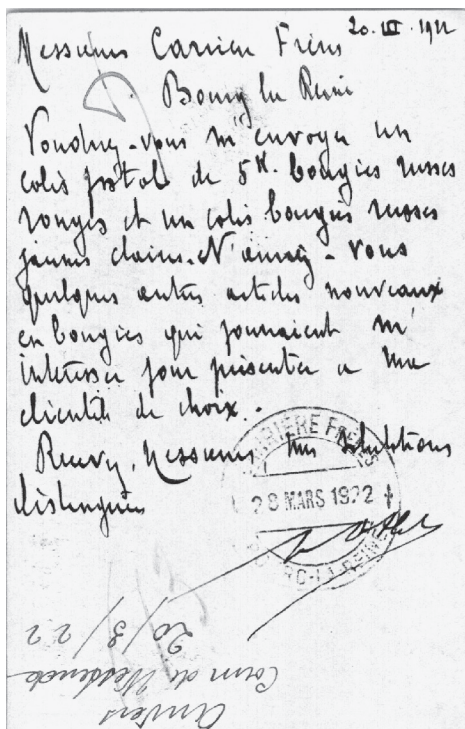 20. III. 1922
Messieurs Carrière Frères
Bourg la Reine
Voudriez-vous m'envoyer un
colis postal de 5 K. bougies russes
rouges et un colis bougies russes
jaunes claires. N'auriez-vous
quelques autres articles nouveaux
en bougies qui pourraient m'
intéresser pour présenter a ma
clientèle de choix.
Recevez, Messieurs mes salutations
distinguées
CARRIÈRE FRÈRES
28 MARS 1922
BOURG-LA-REINE
Anvers
20/3/22